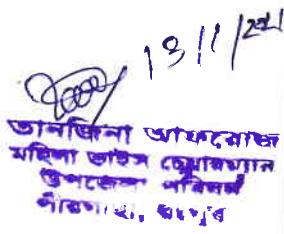 13/1/2021
তানজিনা আফরোজ
মহিলা ভাইস চেয়ারম্যান
উপজেলা পরিষদ
পীরগাছা, রংপুর